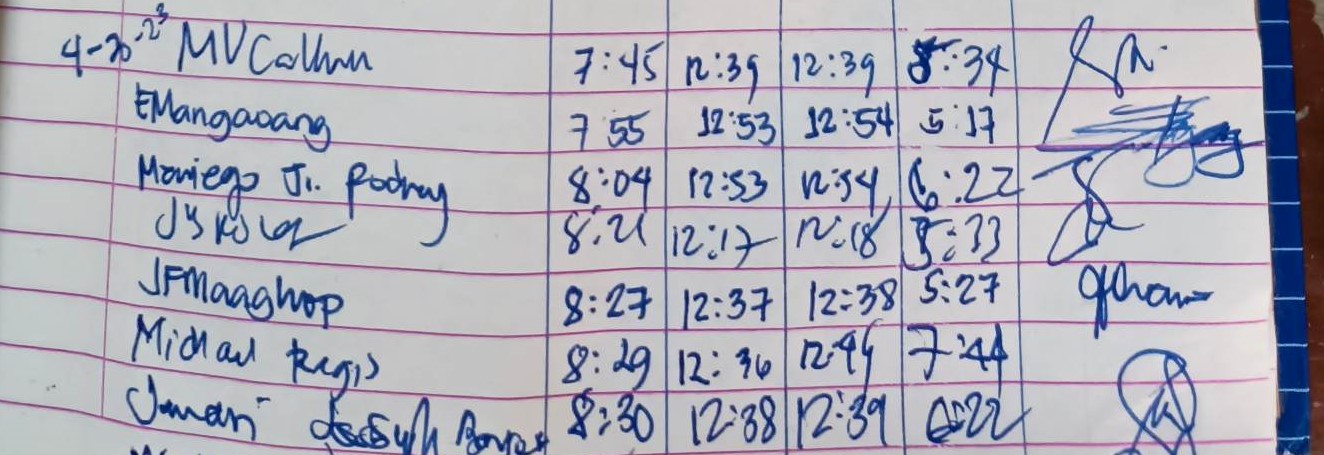 4-20-23 MVCalhun 7:45 12:39 12:39 5:34
EMangaoang 7 55 12:53 12:54 5:17
Moriego Jr. Rodney 8:04 12:53 12:54 6:22
8:21 12:17 12:18 5:33
JFMaaghop 8:27 12:37 12:38 5:27
Michael Regis 8:29 12:36 12:44 7:44
8:30 12:38 12:39 6:22